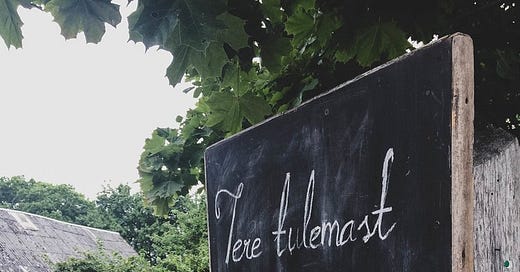 Tere tulemast